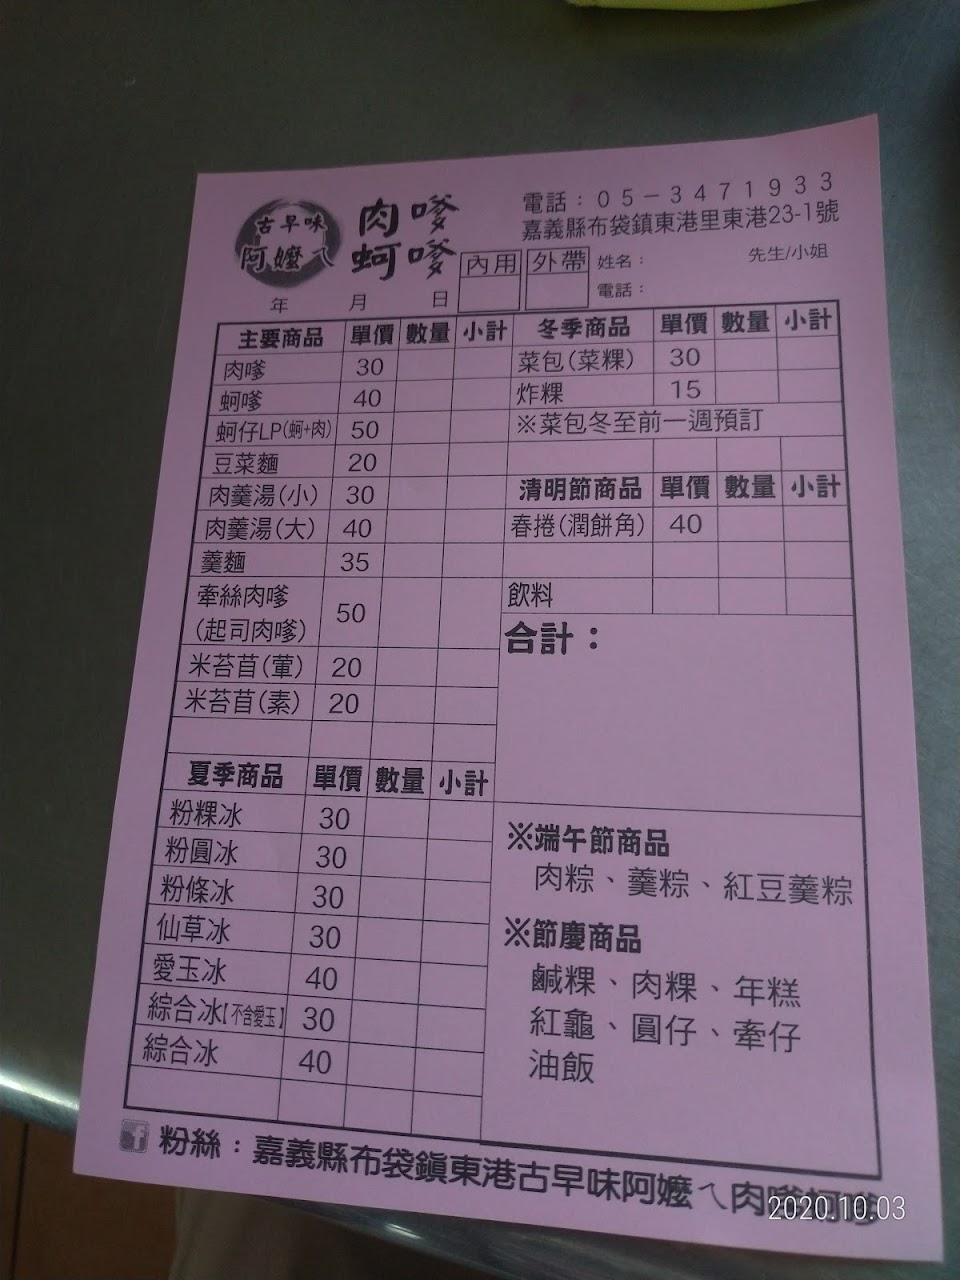 古早味
阿嬤ㄟ
肉嗲
蚵嗲
電話：05－3471933
嘉義縣布袋鎮東港里東港23-1號
內用 外帶
姓名： 先生/小姐
電話：
年 月 日
主要商品 單價 數量 小計
肉嗲 30
蚵嗲 40
蚵仔LP(蚵+肉) 50
豆菜麵 20
肉羹湯(小) 30
肉羹湯(大) 40
羹麵 35
牽絲肉嗲
(起司肉嗲) 50
米苔苜(葷) 20
米苔苜(素) 20
夏季商品 單價 數量 小計
粉粿冰 30
粉圓冰 30
粉條冰 30
仙草冰 30
愛玉冰 40
綜合冰【不含愛玉】 30
綜合冰 40
冬季商品 單價 數量 小計
菜包(菜粿) 30
炸粿 15
※菜包冬至前一週預訂
清明節商品 單價 數量 小計
春捲(潤餅角) 40
飲料
合計：
※端午節商品
肉粽、羹粽、紅豆羹粽
※節慶商品
鹹粿、肉粿、年糕
紅龜、圓仔、牽仔
油飯
f 粉絲：嘉義縣布袋鎮東港古早味阿嬤ㄟ肉嗲蚵嗲
2020.10.03